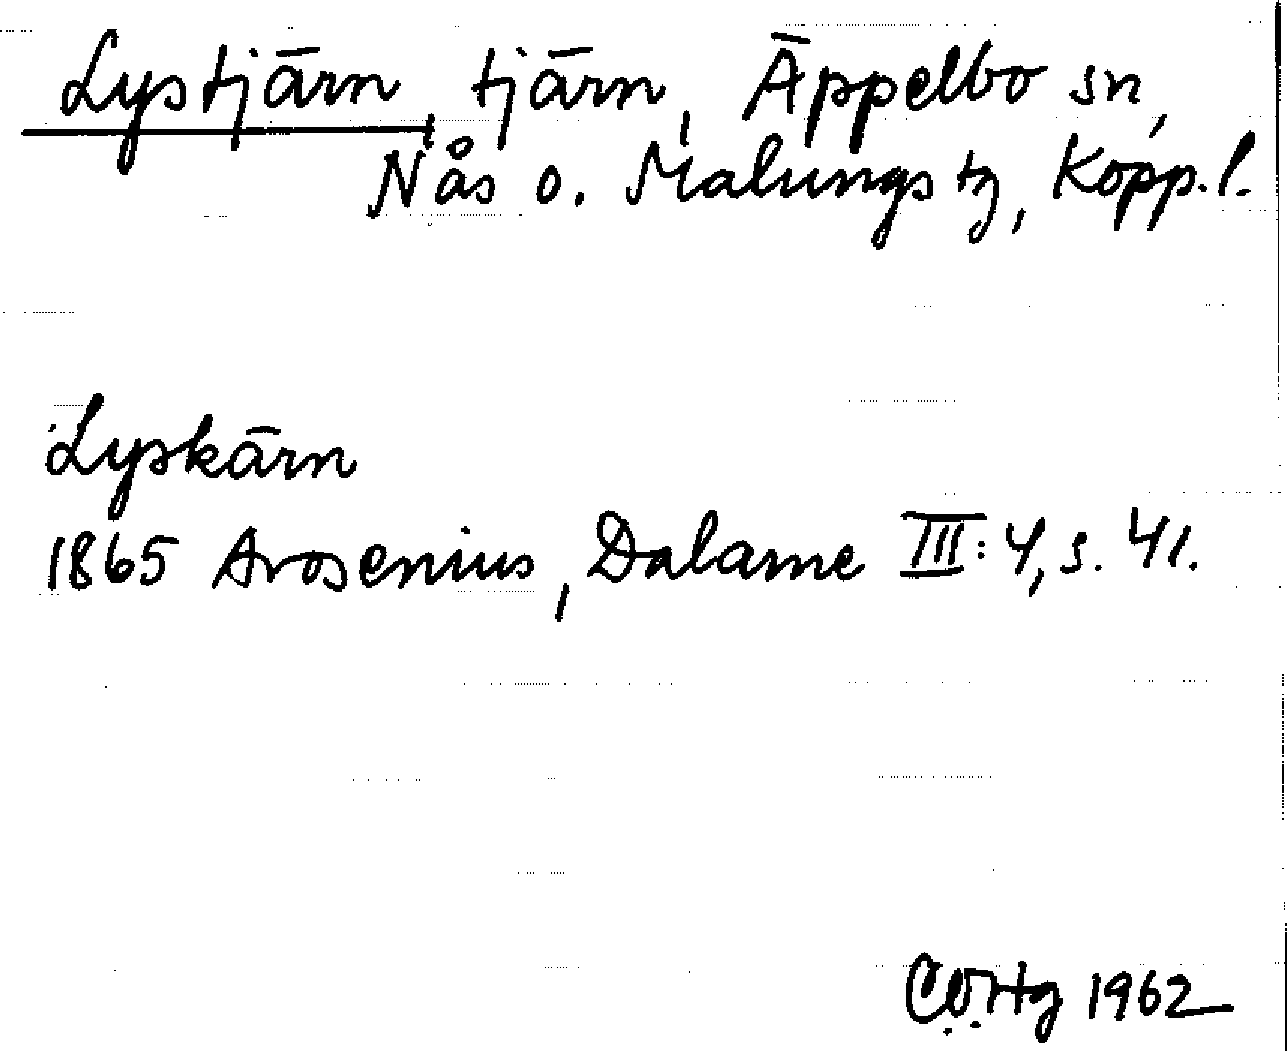 Lystjärn, tjärn, Äppelbo sn,
Nås o. Malungs tg, Kopp. l.
Lyskärn
1865 Arosenius, Dalarne III: 4, s. 41.
1962